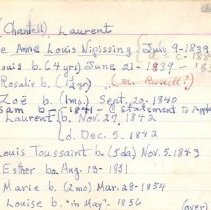 (Chantell), Laurent
e Anne Louis Nipissing July 9-1839
Louis b. (4 yrs) June 21-1839
Rosalie b. (2 yr) (m. Russell?)
Zoë b. (1 mo.) Sept. 20-1840
Sam b. - 1841 - (Statement to Apple
Laurent b. Nov. 27, 1842
d. Dec. 5. 1842
Louis Toussaint b. (5 da) Nov. 5. 1843
Esther b. Aug. 13-1851
Marie b. (2 mo) Mar. 28-1854
Louise b. "in May" 1856 (over)